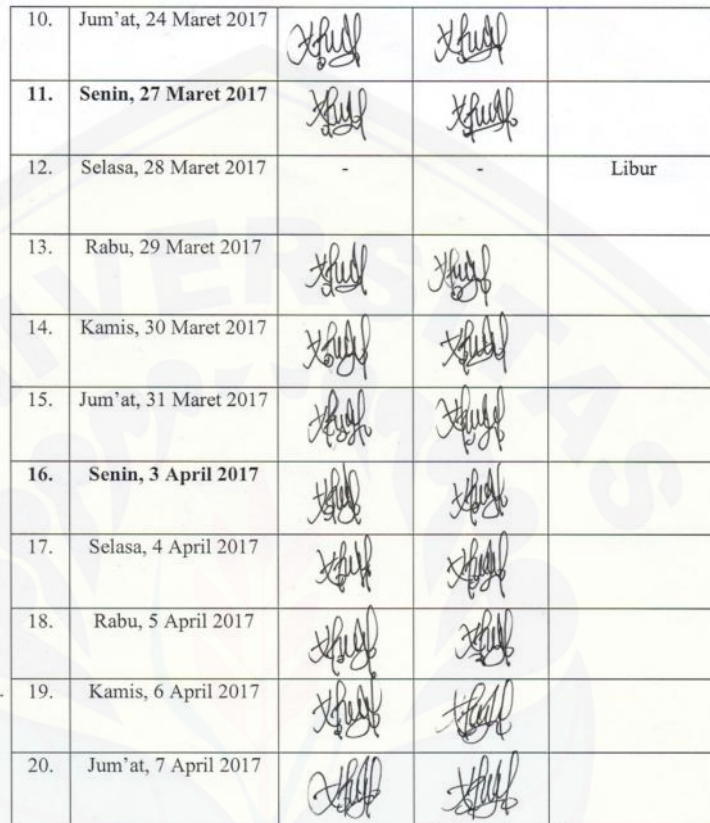 10. Jum'at, 24 Maret 2017
11. Senin, 27 Maret 2017
12. Selasa, 28 Maret 2017 - - Libur
13. Rabu, 29 Maret 2017
14. Kamis, 30 Maret 2017
15. Jum'at, 31 Maret 2017
16. Senin, 3 April 2017
17. Selasa, 4 April 2017
18. Rabu, 5 April 2017
19. Kamis, 6 April 2017
20. Jum'at, 7 April 2017